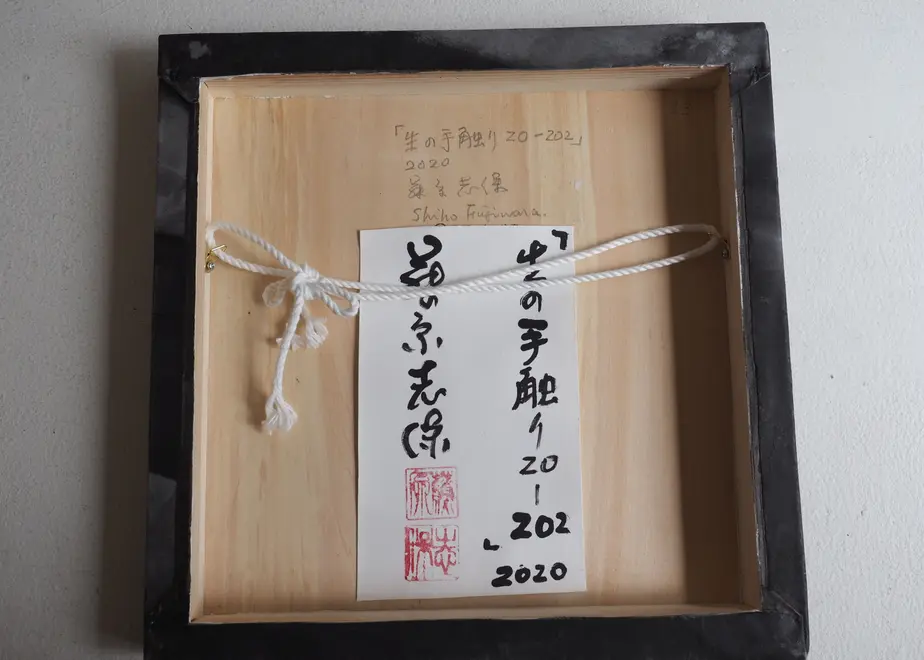 「生の手触り 20-202」
2020
藤原志保
Shiho Fujiwara.
「生の手触り20-202」
2020
藤原志保
藤原
志保